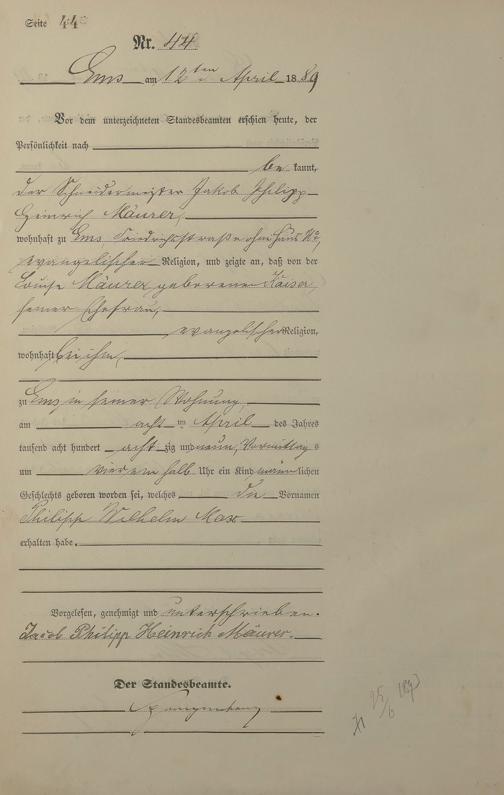 Seite 44
Nr. 44
Ems am 12ten April 1889
Vor dem unterzeichneten Standesbeamten erschien heute, der
Persönlichkeit nach
be kannt,
der Schneidermeister Jakob Philipp
Heinrich Mäurer,
wohnhaft zu Ems Friedrichstraße ohne Haus No,
evangelischer Religion, und zeigte an, daß von der
Louise Mäurer geborenen Kaiser,
seiner Ehefrau,
evangelischer Religion,
wohnhaft bei ihm,
zu Ems in seiner Wohnung,
am acht im April des Jahres
tausend acht hundert acht zig und neun, Vormittag s
um vier ein halb Uhr ein Kind männ lichen
Geschlechts geboren worden sei, welches die Vornamen
Philipp Wilhelm Max
erhalten habe.
Vorgelesen, genehmigt und unterschrieben.
Jacob Philipp Heinrich Mäurer.
Der Standesbeamte.